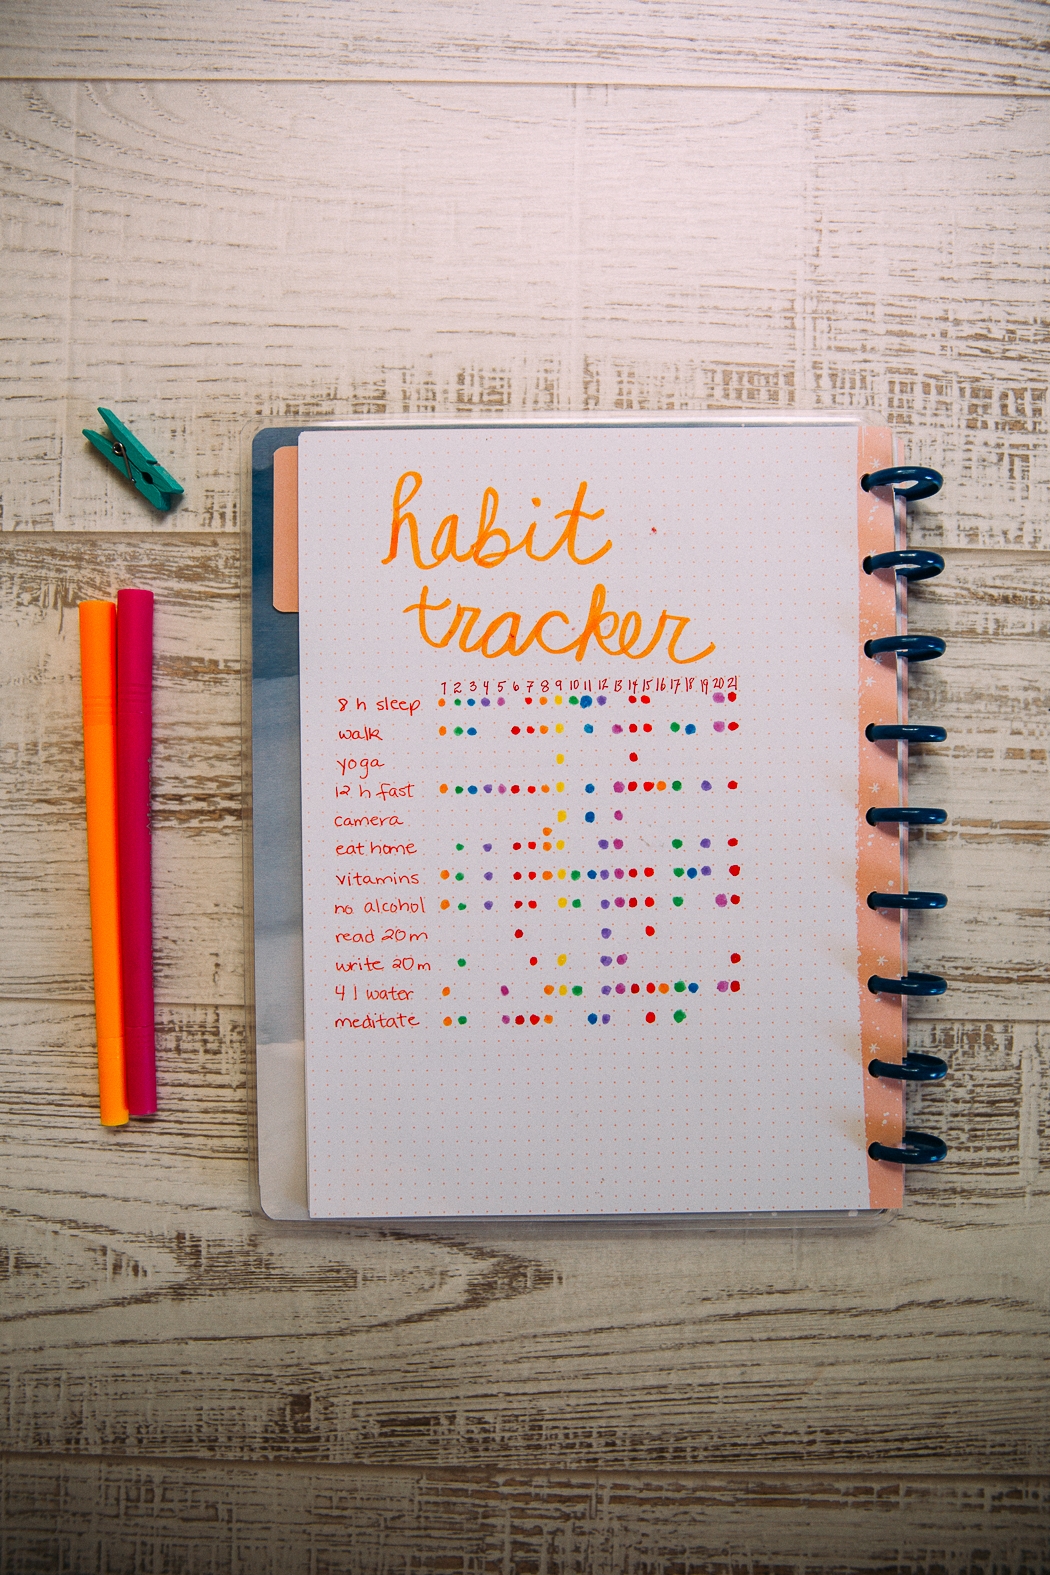 habit
tracker
1 2 3 4 5 6 7 8 9 10 11 12 13 14 15 16 17 18 19 20 21
8 h sleep
walk
yoga
12 h fast
camera
eat home
vitamins
no alcohol
read 20m
write 20m
4 l water
meditate